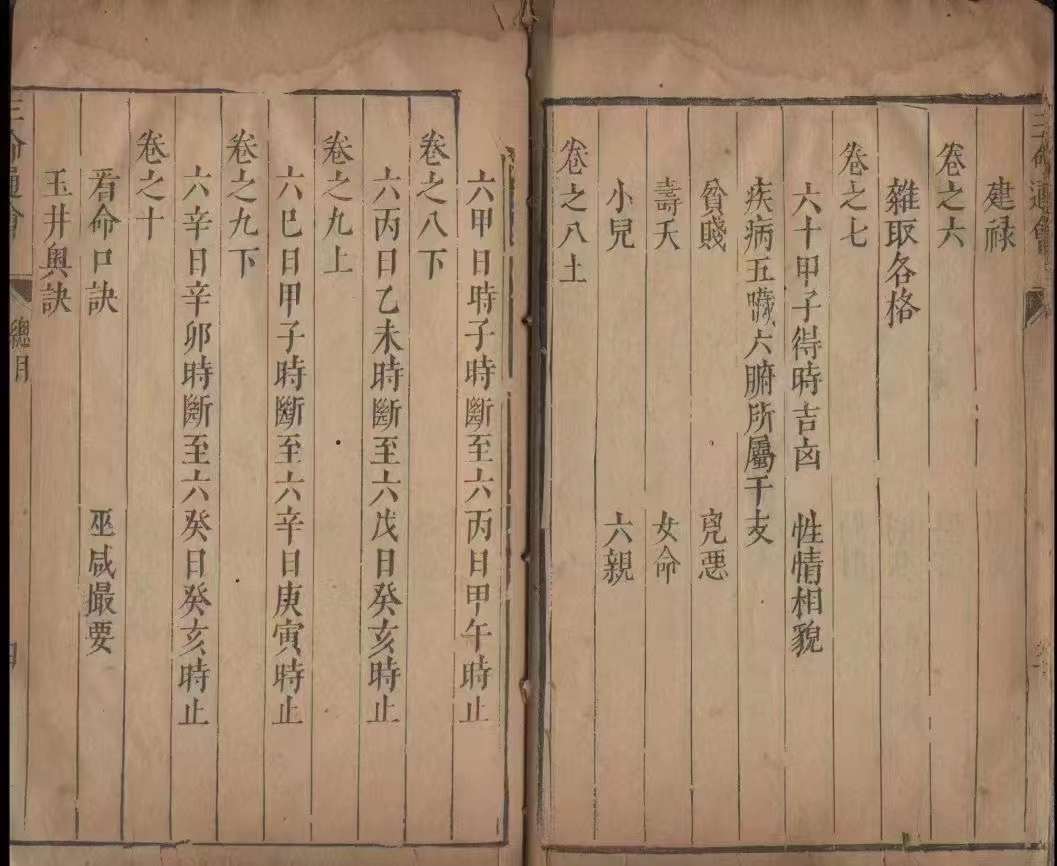 三命通會
建禄
卷之六
雜取各格
卷之七
六十甲子得時吉凶 性情相貌
疾病五臟六腑所屬干支
貧賤 兇惡
壽夭 女命
小兒 六親
卷之八上
六甲日時子時斷至六丙日甲午時止
卷之八下
六丙日乙未時斷至六戊日癸亥時止
卷之九上
六巳日甲子時斷至六辛日庚寅時止
卷之九下
六辛日辛卯時斷至六癸日癸亥時止
卷之十
看命口訣 巫咸撮要
玉井奧訣
三命通會 總目 四